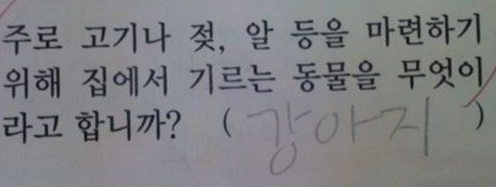 주로 고기나 젖, 알 등을 마련하기
위해 집에서 기르는 동물을 무엇이
라고 합니까? ( 강아지 )